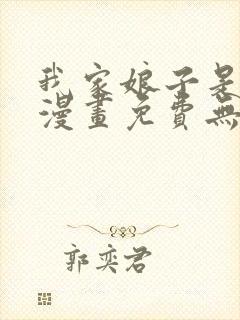 我家娘子是
漫畫免費無
郭奕君